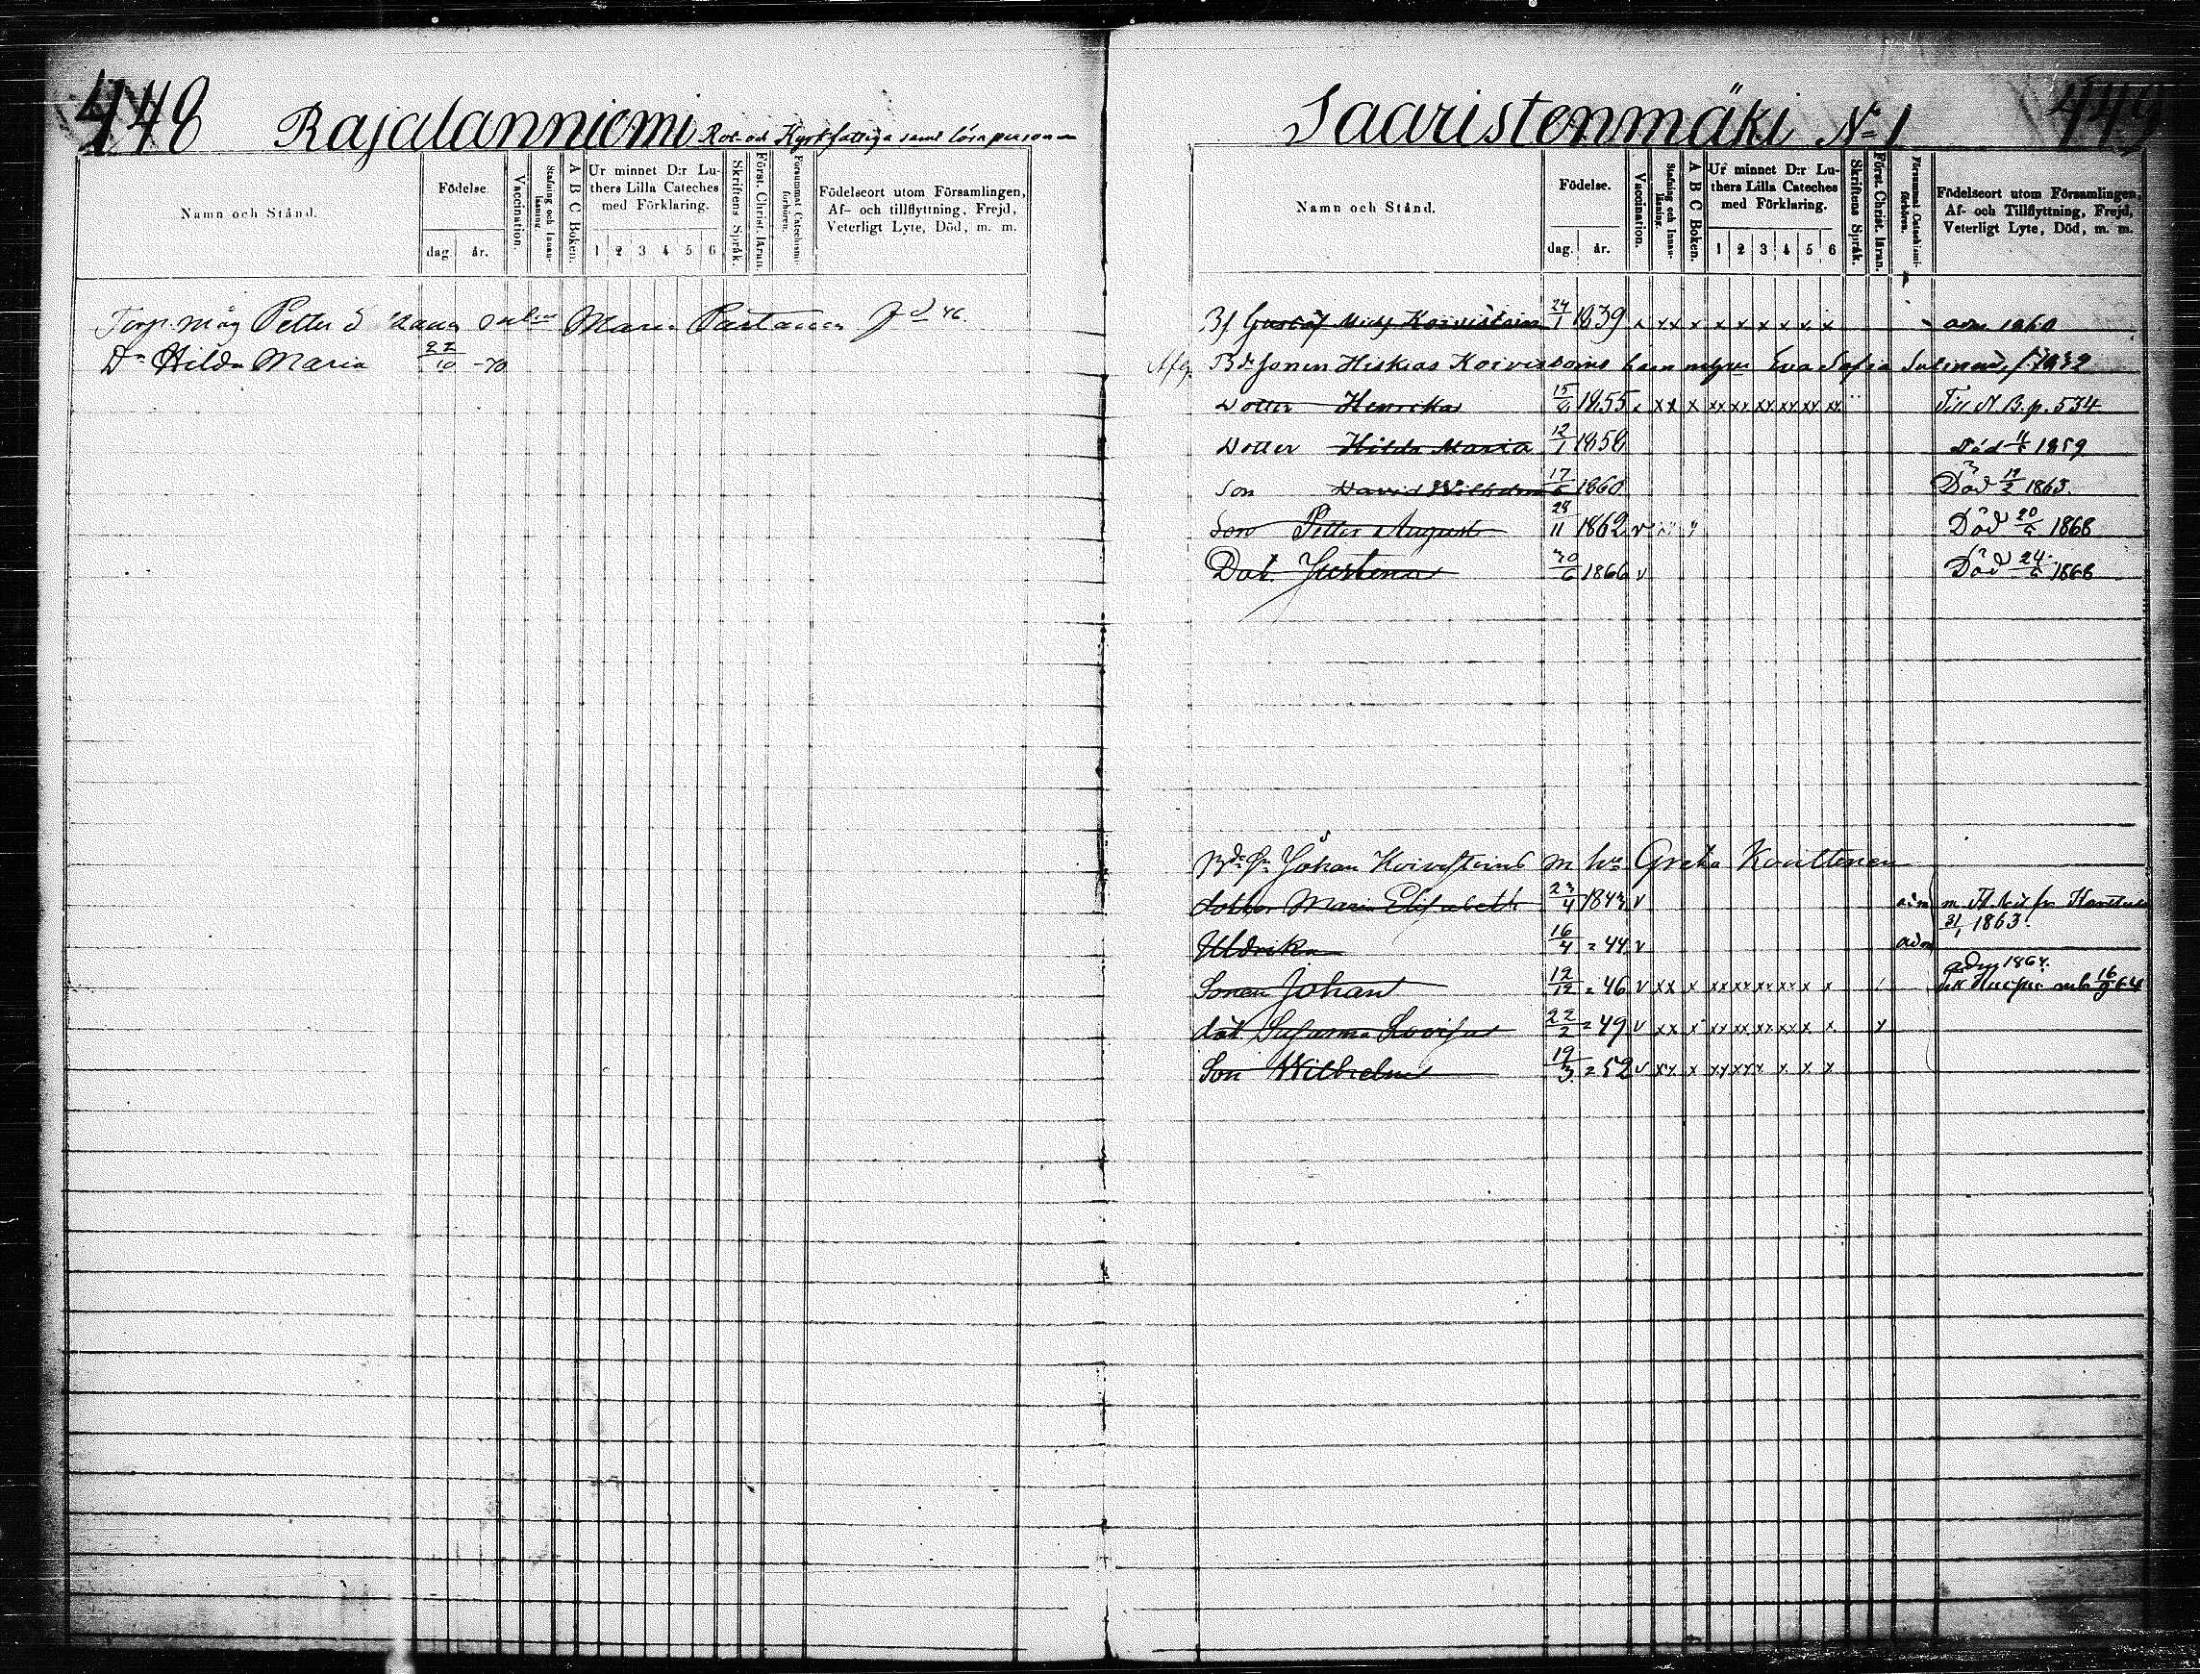 448 Rajalanniemi Rot- och Kyrkfattiga samt lösa personer
Namn och Stånd.
Födelse.
dag. år.
Vaccination.
Stafning och Innanläsning.
A B C Boken.
Ur minnet D:r Luthers Lilla Cateches med Förklaring.
1 2 3 4 5 6
Skriftens Språk.
Först. Christ. läran.
Försummat Catechismiförhören.
Födelseort utom Församlingen,
Af- och tillflyttning, Frejd,
Veterligt Lyte, Död, m. m.
Torp. måg Petter Maria Partanen
Dr Hilda Maria 22/10 -70
Saaristenmäki No 1 449
Namn och Stånd.
Födelse.
dag. år.
Vaccination.
Stafning och Innanläsning.
A B C Boken.
Ur minnet D:r Luthers Lilla Cateches med Förklaring.
1 2 3 4 5 6
Skriftens Språk.
Först. Christ. läran.
Försummat Catechismiförhören.
Födelseort utom Församlingen,
Af- och Tillflyttning, Frejd,
Veterligt Lyte, Död, m. m.
Bf Gustaf Koivistoinen 24/1 1839 x xx x x x x x x x
Bdr Sonen Hiskias Koivistoins Eva Sofia
Dotter Henrika 15/6 1855 x xx x xx xx xx xx xx xx Till N. B. p. 534
Dotter Hilda Maria 12/1 1858 Död 1859
Son David Wilhelm 17/6 1860 Död 1863.
Son Petter August 28/11 1862 v Död 20/6 1868
Dot. Justina 30/6 1866 v Död 24/6 1868
Johan Koivistoins m hu Greta Kouttenen
dotter Maria Elisabeth 23/4 1843 v
31/1 1863.
Uldrika 16/4 = 44 v
Sonen Johan 12/12 = 46 v xx x xx xx xx xx x x
dot Susanna Lovisa 22/2 = 49 v xx x xx xx xx xx x x
Son Wilhelm 19/3 = 52 v xx x xx xx x x x x